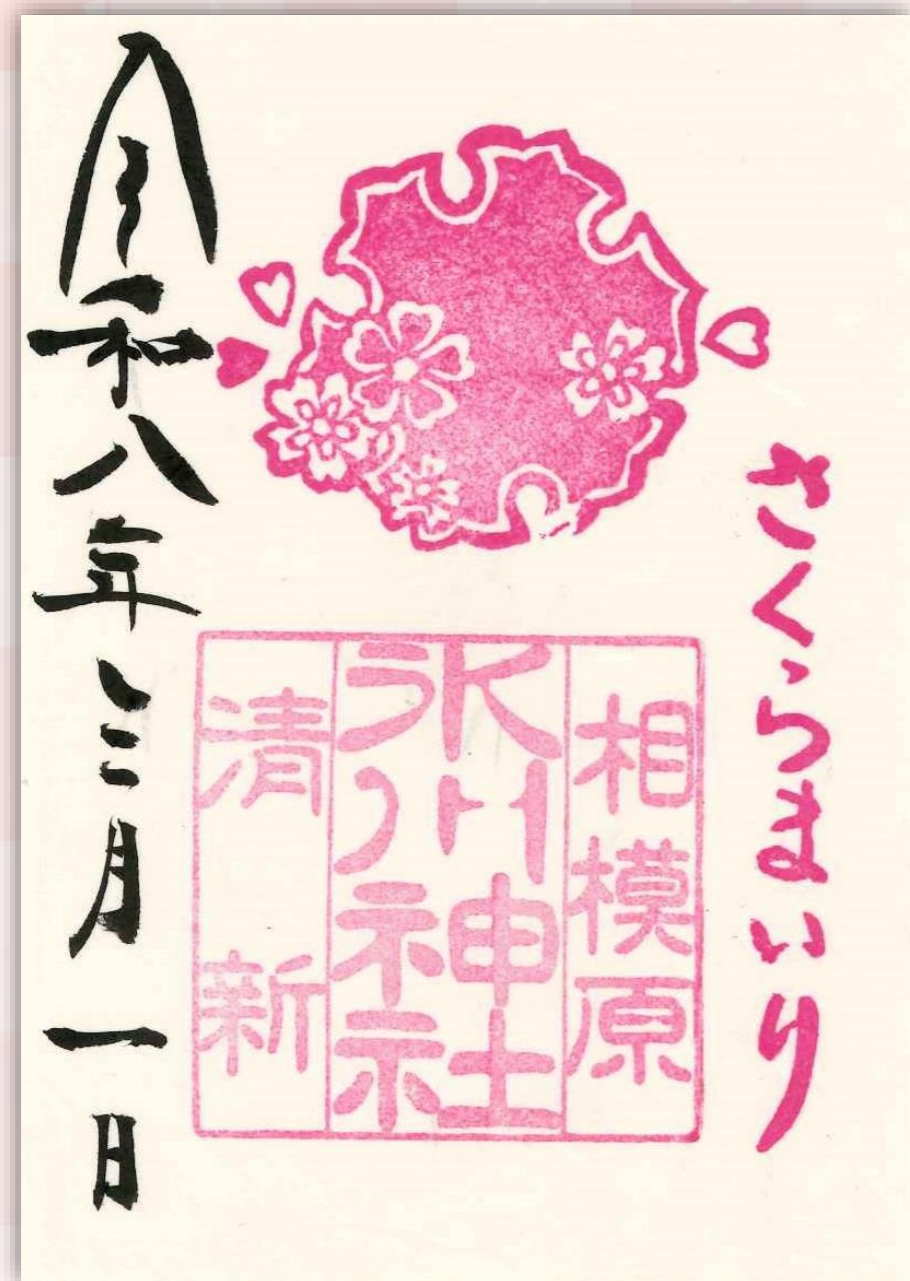 さくらまいり
相模原
氷川神社
清新
令和八年三月一日